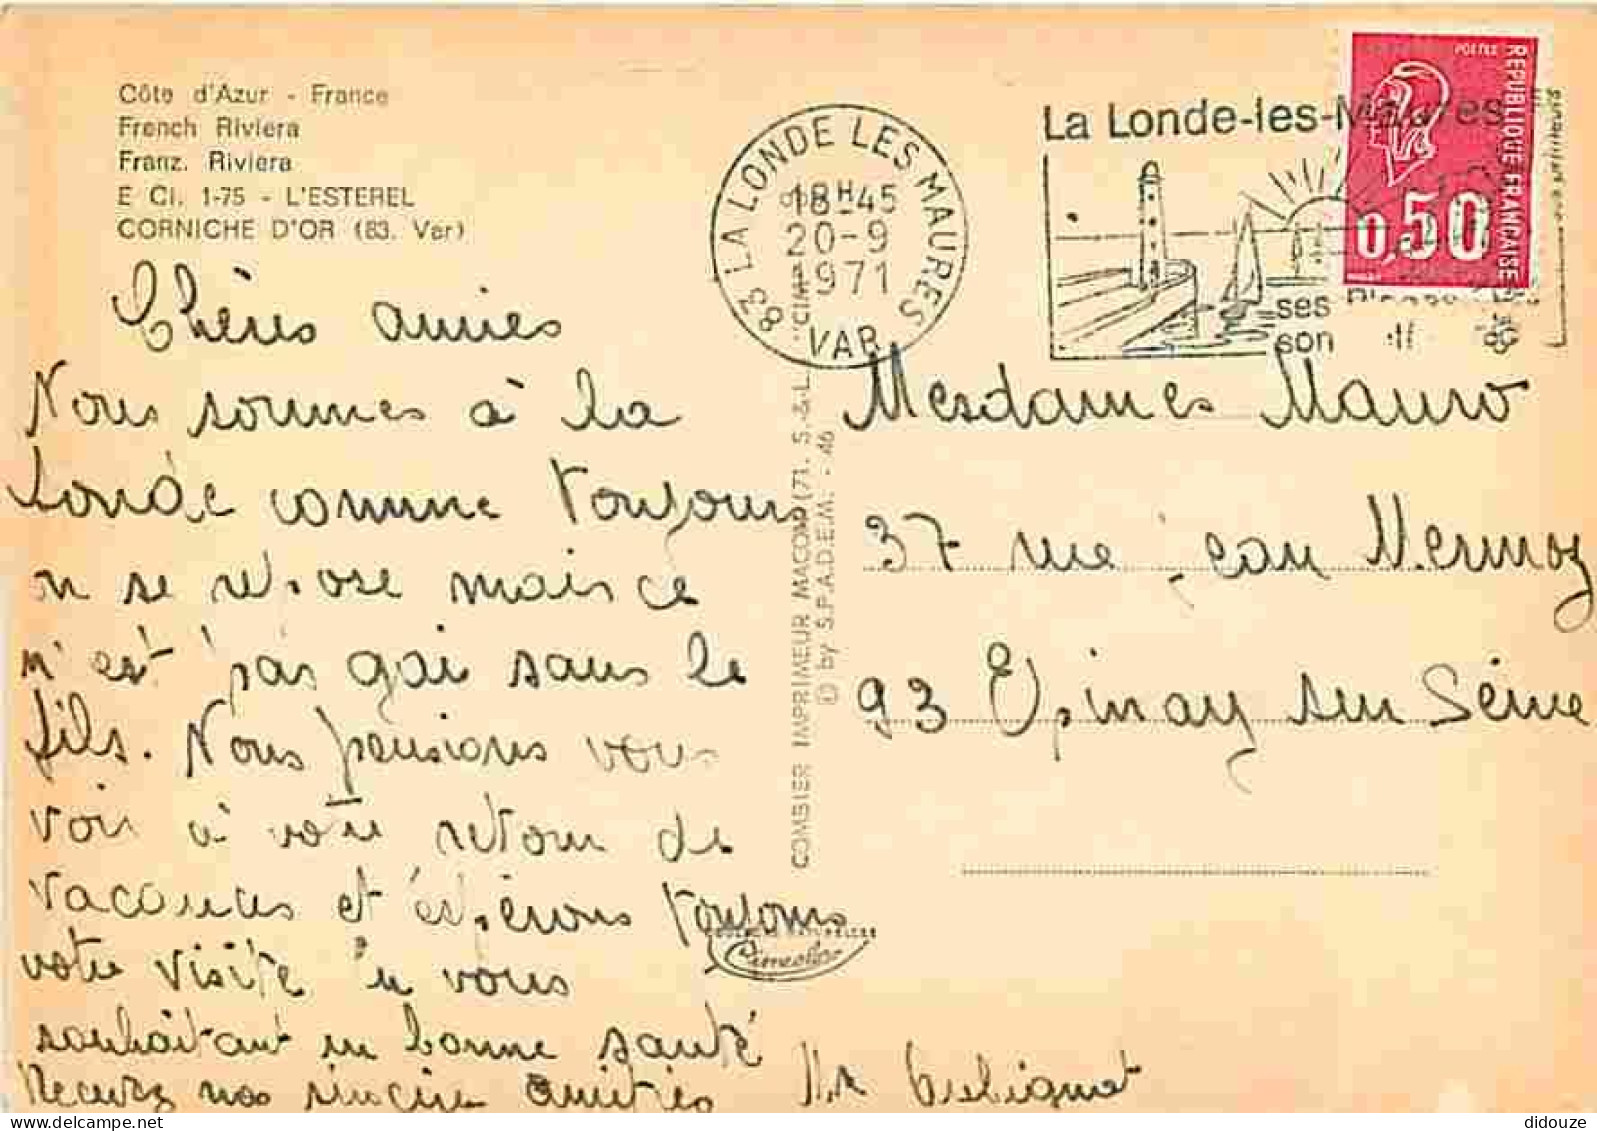 Côte d'Azur - France
French Riviera
Franz. Riviera
E Ci. 1-75 - L'ESTEREL
CORNICHE D'OR (83. Var)
83 LA LONDE LES MAURES
18H45
20-9
1971
VAR
La Londe-les-Maures
ses
son
POSTES
REPUBLIQUE FRANÇAISE
0,50
Chères amies
Nous sommes à la
Londe comme toujours
on se repose mais ce
n'est pas gai sans le
fils. Nous pensions vous
voir à votre retour de
vacances et espérons toujours
votre visite en vous
souhaitant en bonne santé
Recevez nos sincère amitiés
Mesdames Mauro
37 rue jean Mermoz
93 Epinay sur Seine
COMBIER IMPRIMEUR MACON (71. S.&L. "CIM"
© by S.P.A.D.E.M. - 46
didouze